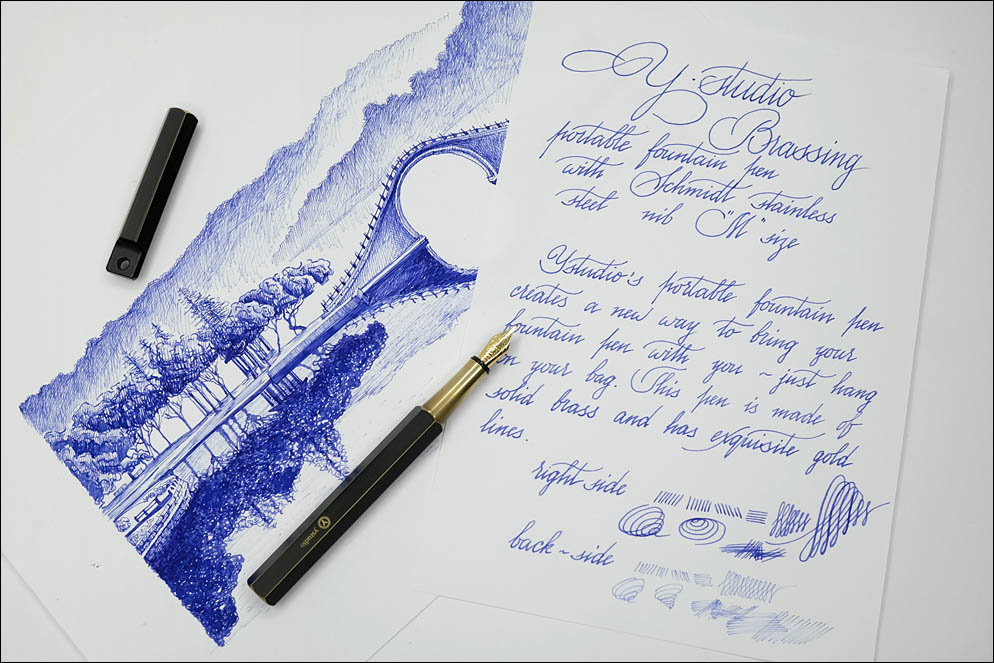 Y.studio
Brassing
portable fountain pen
with Schmidt stainless
steel nib "M" size
Ystudio's portable fountain pen
creates a new way to bring your
fountain pen with you ~ just hang
on your bag. This pen is made of
solid brass and has exquisite gold
lines.
right side
back ~ side
ystudio